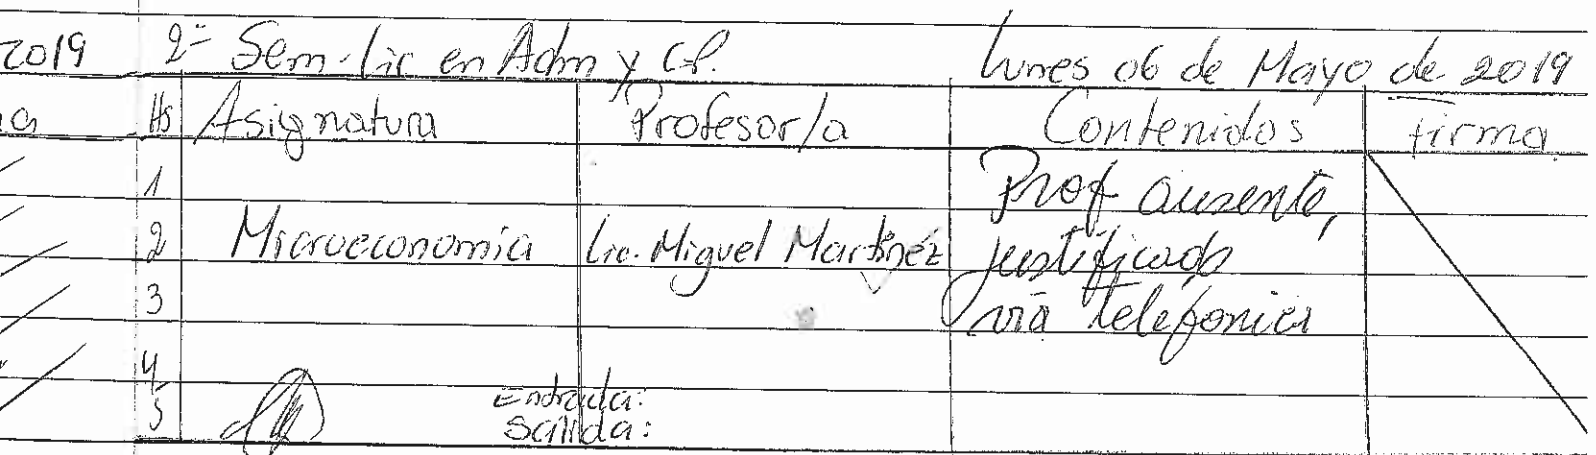 2019 2º Sem-Lic en Adm y C.P. Lunes 06 de Mayo de 2019
Hs Asignatura Profesor/a Contenidos Firma
1 Prof ausente,
2 Microeconomía Lic. Miguel Martínez justificado
3 vía telefonica
4
5 Entrada:
Salida: